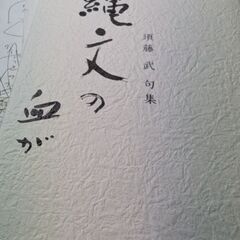 縄文の
血が
須藤 武 句集